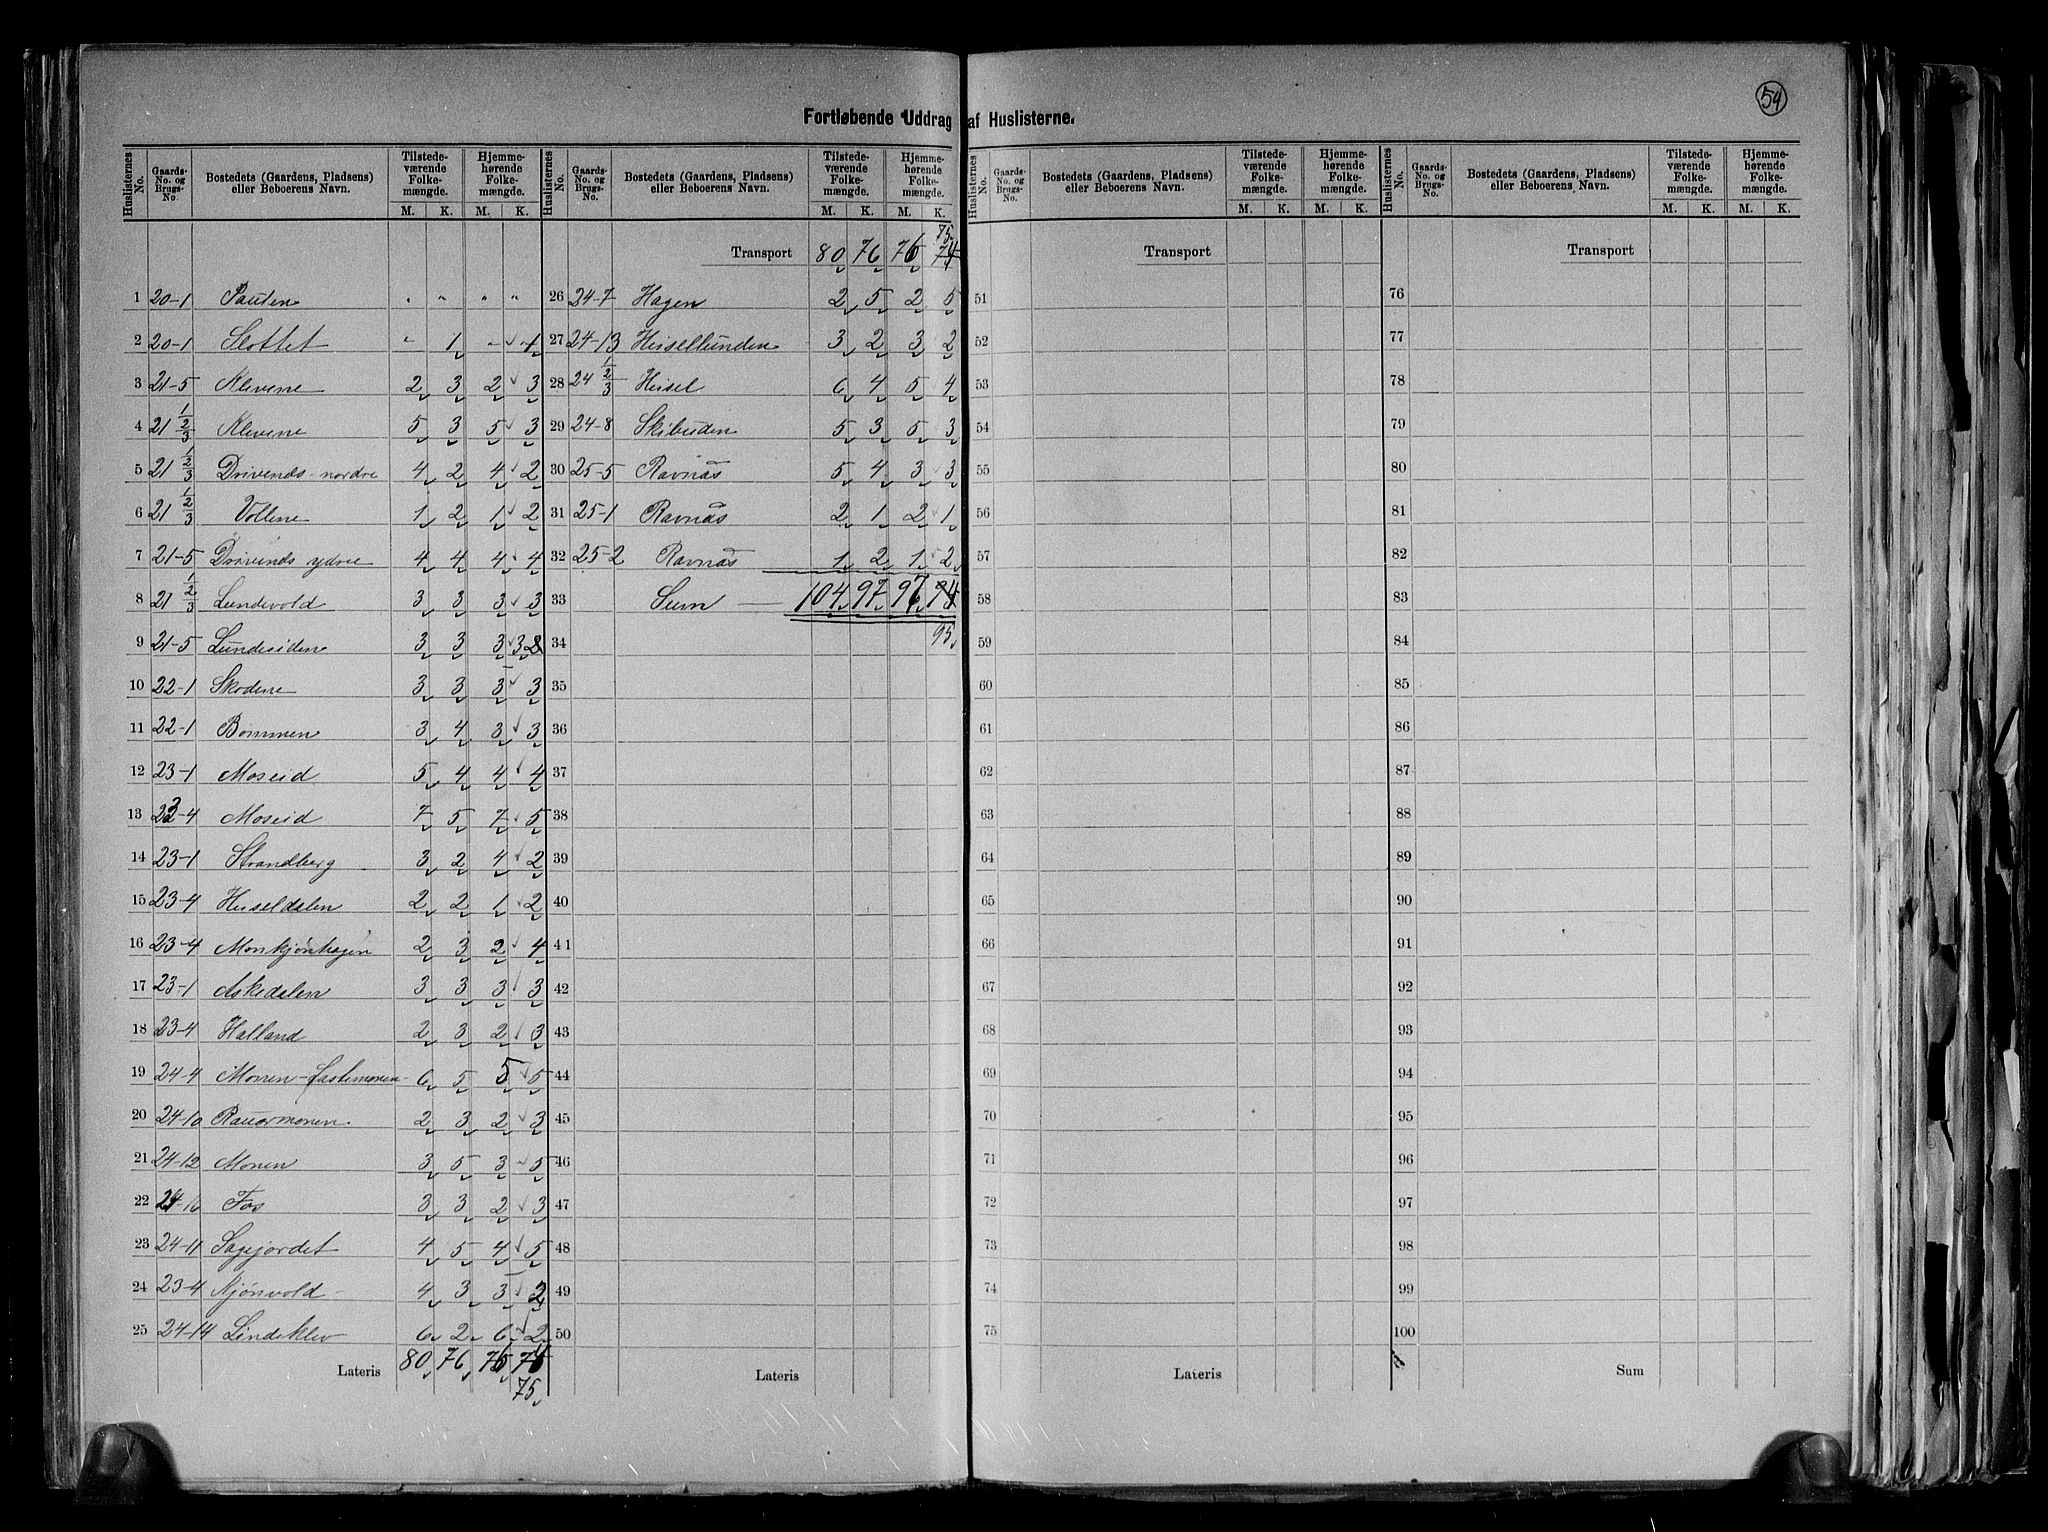 54
Fortløbende Uddrag af Huslisterne.
Huslisternes No. Gaards-No. og Brugs-No. Bostedets (Gaardens, Pladsens) eller Beboerens Navn. Tilstedeværende Folkemængde. M. K. Hjemmehørende Folkemængde. M. K.
1 20-1 Pauten " " " "
2 20-1 Slottet " 1 " 1
3 21-5 Klevene 2 3 2 3
4 21 1/2/3 Klevene 5 3 5 3
5 21 1/2/3 Drivenes nordre 4 2 4 2
6 21 1/2/3 Vollene 1 2 1 2
7 21-5 Drivenes ydre 4 4 4 4
8 21 1/2/3 Lundevold 3 3 3 3
9 21-5 Lundesidene 3 3 3 3
10 22-1 Skodene 3 3 3 3
11 22-1 Bommen 3 4 3 3
12 23-1 Moseid 5 4 4 4
13 23-4 Moseid 7 5 7 5
14 23-1 Strandberg 3 2 4 2
15 23-4 Heiseldalen 2 2 1 2
16 23-4 Monkjønhagen 2 3 2 4
17 23-1 Askedalen 3 3 3 3
18 23-4 Halland 2 3 2 3
19 24-4 Monen-Fastemonen 6 5 5 5
20 24-10 Rauormonen 2 3 2 3
21 24-12 Monen 3 5 3 5
22 24-16 Fos 3 3 2 3
23 24-11 Sagejordet 4 5 4 5
24 23-4 Kjønvold 4 3 3 2
25 24-14 Lindeklev 6 2 6 2
Lateris 80 76 76 74
75
Huslisternes No. Gaards-No. og Brugs-No. Bostedets (Gaardens, Pladsens) eller Beboerens Navn. Tilstedeværende Folkemængde. M. K. Hjemmehørende Folkemængde. M. K.
75
Transport 80 76 76 74
26 24-7 Hagen 2 5 2 5
27 24-13 Heisellunden 3 2 3 2
28 24 1/2/3 Heisel 6 4 5 4
29 24-8 Skibuden 5 3 5 3
30 25-5 Ravnås 5 4 3 3
31 25-1 Ravnås 2 1 2 1
32 25-2 Ravnås 1 2 1 2
33 Sum 104 97 97 94
34 95
35
36
37
38
39
40
41
42
43
44
45
46
47
48
49
50
Lateris
Huslisternes No. Gaards-No. og Brugs-No. Bostedets (Gaardens, Pladsens) eller Beboerens Navn. Tilstedeværende Folkemængde. M. K. Hjemmehørende Folkemængde. M. K.
Transport
51
52
53
54
55
56
57
58
59
60
61
62
63
64
65
66
67
68
69
70
71
72
73
74
75
Lateris
Huslisternes No. Gaards-No. og Brugs-No. Bostedets (Gaardens, Pladsens) eller Beboerens Navn. Tilstedeværende Folkemængde. M. K. Hjemmehørende Folkemængde. M. K.
Transport
76
77
78
79
80
81
82
83
84
85
86
87
88
89
90
91
92
93
94
95
96
97
98
99
100
Sum